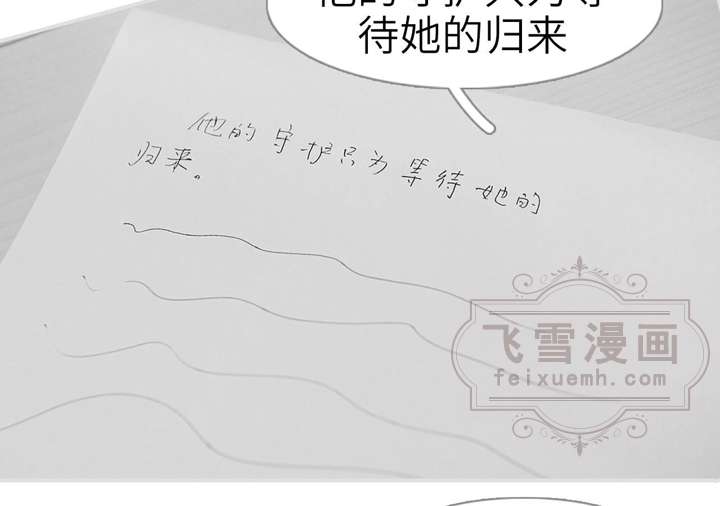 他的守护只为等
待她的归来
他的守护只为等待她的
归来。
飞雪漫画
feixuemh.com